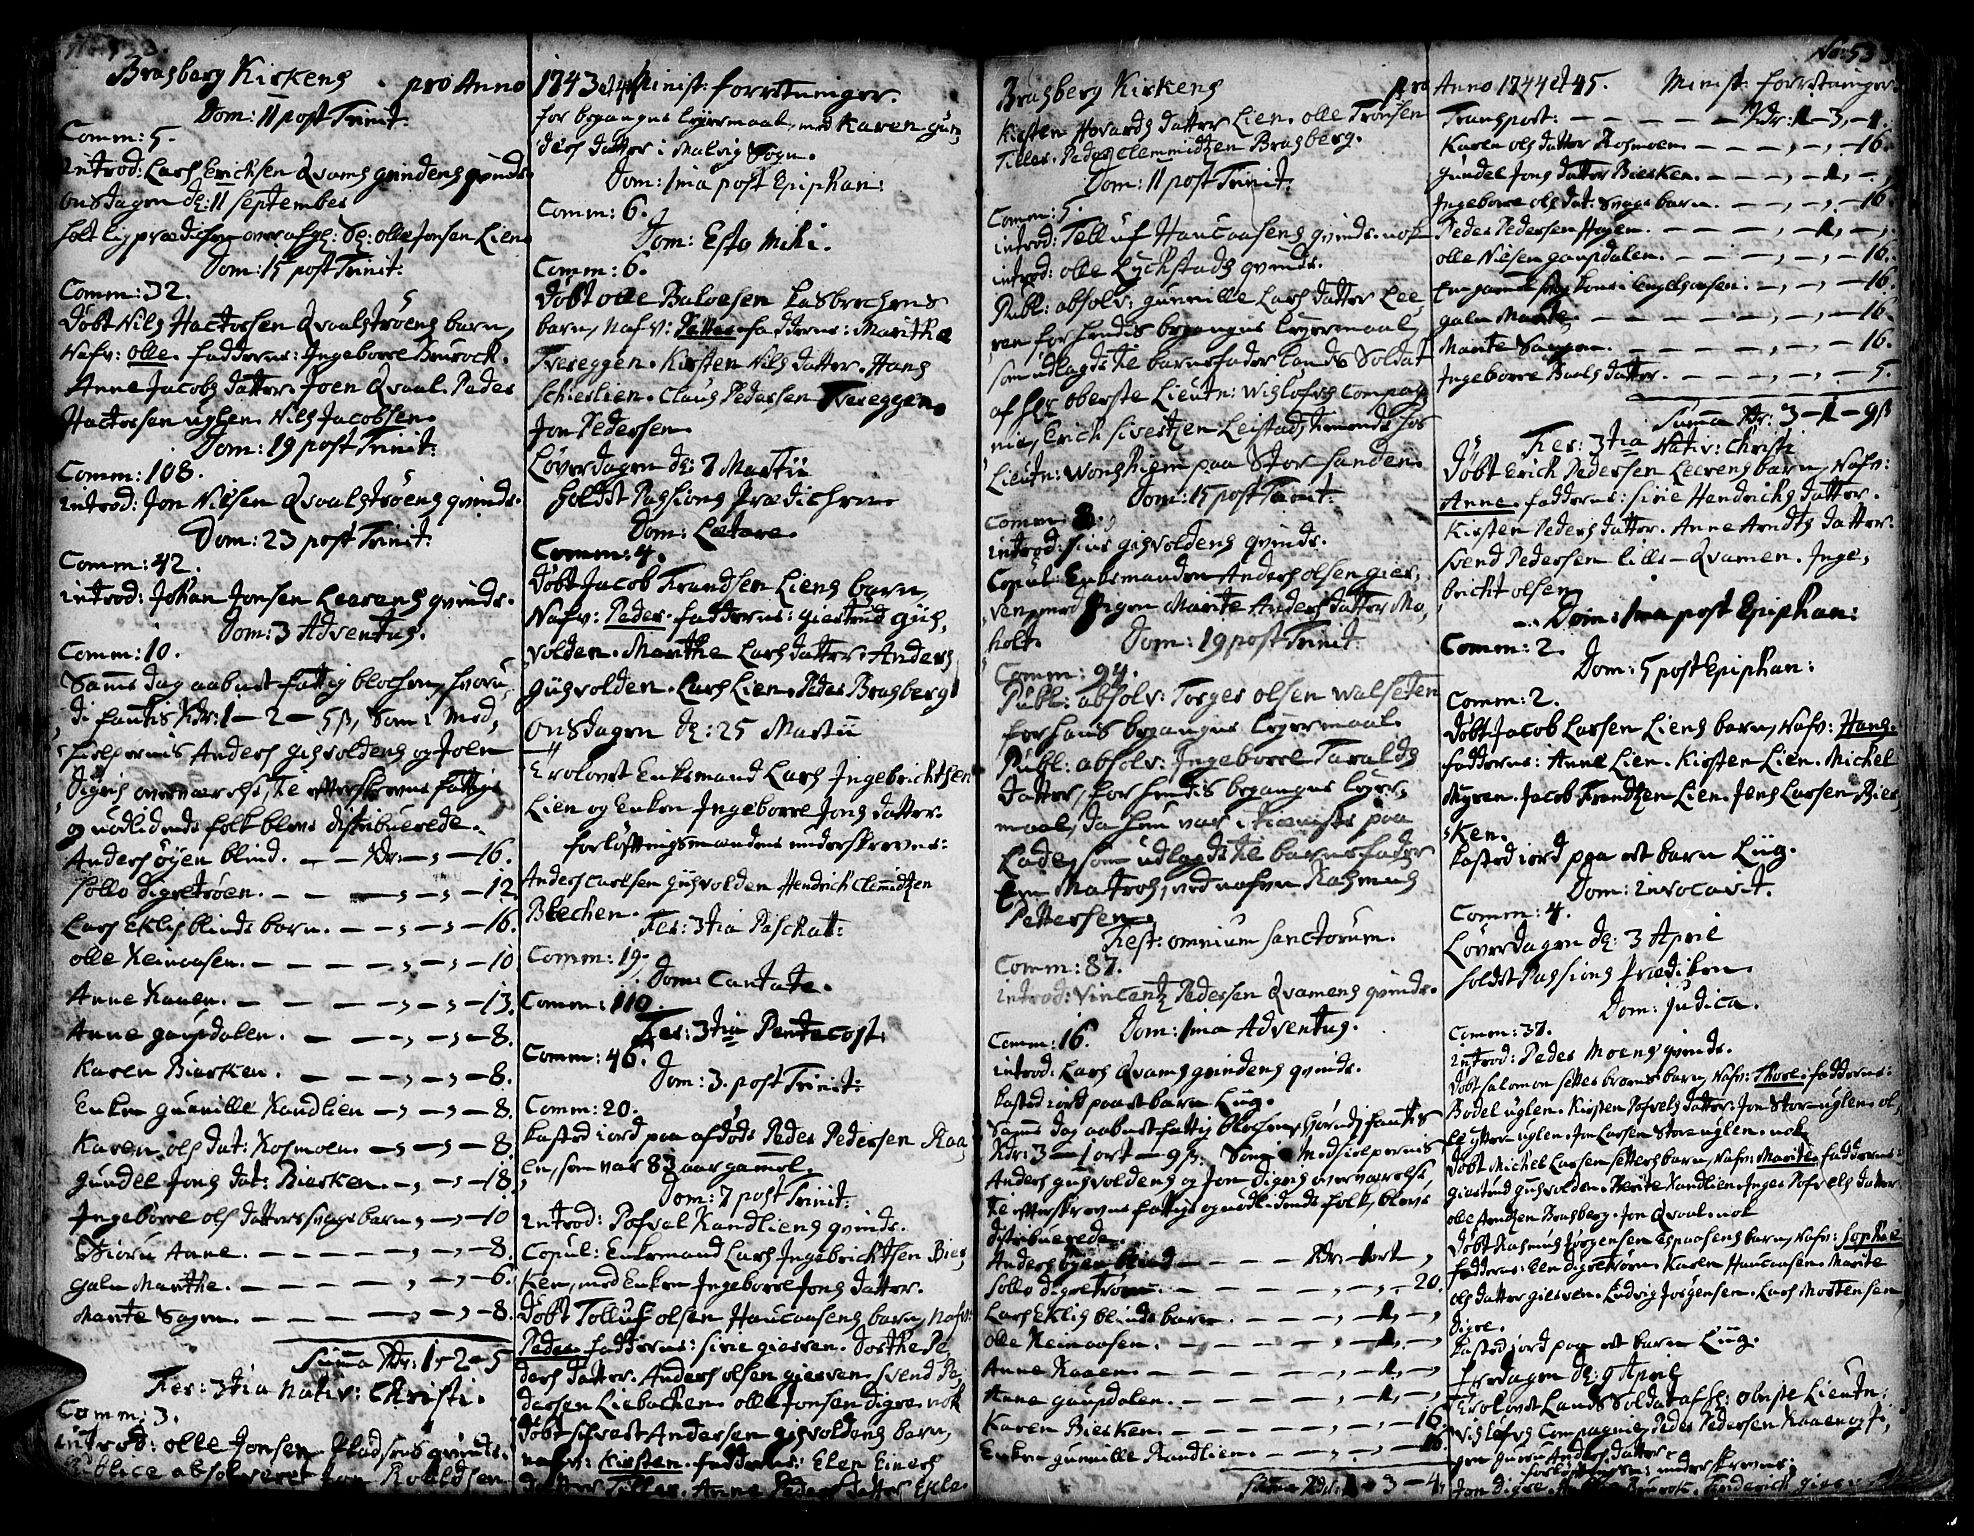 Bragberg Kirkens pro Anno
Dom: 11 post Trinit:
Comm: 5.
introd: Lars Ericksen Qvams grindens qvinde.
Onsdagen d: 11 September
holt ligprædichen over afgl: Sl: olle Jonsen Lien
Dom: 15 post Trinit:
Comm: 32.
Døbt Nils Hactorsen Qvaalstrøens barn,
Nafv: olle. fadderne: Ingeborre
Anne Jacobs datter. Joen Qvaal. Peder
Hactorsen uglen. Nils Jacobsen.
Dom: 19 post Trinit:
Comm: 108.
introd: Jon Nilsen Qvaalstrøens qvinde.
Dom: 23 post Trinit:
Comm: 42.
introd: Johan Jonsen Leerens qvinde.
Dom: 3 Adventus.
Comm: 10.
Samme dag aabnet fattig blochen, hvoru,
di fantis Rdr: 1 – 2 – 5 β, Som i Med,
hielpernis Anders gisvoldens og Joen
Digris overværelse, te efterskrevne fattige
og nødlidende folk blevs distribuerede.
Anders øyen blind. — Rdr: — , — 16.
Sollo digretrøen. — — , — , — 12
Lars Eklis blinde barn. — , — , — 16.
olle Reinaasen. — — — , — , — 10
Anne Kaaen. — — — , — , — 13.
Anne gaupdalen. — — , — , — 8.
Karen Biersken. — — , — , — 8.
Enken gunnille Kandlien — , — , — 8.
Karen ols dat: Rosmoen. — , — , — 8.
Gundel Jons dat: Biersken. — , — 18.
Ingeborre ols datters svage barn, — , — 10
Anne. — — — — , — , — 8.
galn Marthe. — — — — , — , — 6.
Marite Sagen. — — — , — , — 8.
Summa Rdr: 1 – 2 – 5
Fer: 3tia Nativ: Christi.
Comm: 3.
introd: olle Jonsen qvinde.
Publice absolveret Jon
1743 et 44 Minist: forretninger.
for begangne leyermaal, med Karen gun,
ders datter i Malvig Sogn.
Dom: 1ma post Epiphan:
Comm: 6.
Dom: Esto Mihi.
Comm: 6.
Døbt olle
barn, Nafv: Petter. fadderne: Marithe
Tvereggen. Kirsten Nils datter. Hans
Schierlien. Claus Pedersen Tvereggen.
Jon Pedersen.
Løverdagen d: 7 Martii
holdt Passions Prædichen.
Dom: Lætare.
Comm: 4.
Døbt Jacob Frandsen Liens barn,
Nafv: Peder. fadderne: giertrud gis,
volden. Marithe Lars datter. Anders
gisvolden. Lars Lien. Peder Bragberg
Onsdagen d: 25 Martii
Erolovet Enkemand Lars Ingebrichtsen
Lien og Enken Ingeborre Jons datter.
forløftningsmændene underskrevne:
Anders gisvolden Hendrich Clemmidtzen
Blechen.
Fer: 3tia Paschat:
Comm: 19.
Dom: Cantate.
Comm: 110.
Fer: 3tia Pentecost:
Comm: 46.
Dom: 3. post Trinit:
Comm: 20.
kasted iord paa afdøde Peder Pedersen Kaa,
en, som var 83 aar gammel.
Dom: 7 post Trinit:
introd: Pofval Kandliens qvinde.
Copul: Enkemand Lars Ingebrichtsen Biers
ken, med Enken Ingeborre Jons datter.
Døbt Tolluf olsen Haucaasens barn, Nafv:
Peder. fadderne: Sirie giersen. Dorthe Pe,
ders datter. Anders olsen giersen. Svend Pe,
dersen Liebachen. olle Jonsen digre. nok
Døbt Sifvert Andersen gisvoldens barn,
nafv: Kirsten. fadderne: Elen Einers
datter Tiller. Anne Peders datter
Bragberg Kirkens pro
Kirsten Hovards datter Lien. olle Tronsen
Tiller. Peder Clemmidtzen Bragberg.
Dom: 11 post Trinit:
Comm: 5.
introd: Tolluf Haucaasens qvinde. nok
introd: olle Lyckstads qvinde.
Publ: absolv: gunnille Lars datter Lee
ren for hendis begangne leyermaal,
som udlagde te barnefader Lands Soldat
af Hr: oberste Lieutn: Wislofvs Compag
nie, Erick Sivertzen Leistad, tienende hos
Lieutn: paa Stor Sanden.
Dom: 15 post Trinit:
Comm: 8.
introd: Siur gisvoldens qvinde.
Copul: Enkemanden Anders olsen gier,
sen med Pigen Marite Anders datter Mo,
holt.
Dom: 19 post Trinit:
Comm: 94.
Publ: absolv: Torger olsen Walseten
for hans begangne leyermaal.
Publ: absolv: Ingeborre Taralds
datter, for hendis begangne leyer,
maal, da hun var i tienniste paa
Lade, som udlagde te barnefader
Een Matros, ved nafn Rasmus
Pettersen.
Fest: omnium Sanctorum.
Comm: 87.
introd: Vincentz Pedersen Qvamens qvinde.
Dom: 1ma Adventus.
Comm: 16.
introd: Lars Qvams grindens qvinde.
kasted iord paa et barn Liig.
Samme dag aabnet fattig blochen, hvorudj fantis
Rdr: 3 – 1 ort – 9 β. Som i Medhielpernis
Anders gisvoldens og Jon digris overværelse
te efterskrevne fattige og nødlidende folk, blevs
distribuerede.
Anders øyen blind — — — Rdr: 1 ort ,
Sollo digretrøen. — — — — , — , — 20.
Lars Eklis blinde barn. — — — , — 1 , —
olle Reinaasen. — — — , — 1 , —
Anne Kaaen. — — — — , — 1 , —
Anne gaupdalen. — — — , — 1 , —
Karen Biersken. — — — — , — , — 16.
Enken gunnille Kandlien. — — — , — , — 16.
Summa Rdr: 1 – 3 – 4
No: 533
Anno 1744 et 45. Minist: forretninger
Transport: — — — — — Rdr: 1 – 3 – 4.
Karen ols datter Rosmoen. — — — , — , — 16.
Gundel Jons datter Biersken. — — — , 1 , —
Ingeborre ols dat: svage barn. — — , — , — 16.
Peder Pedersen Høyen. — — — , 1 , —
olle Nilsen gaupdalen. — — — , — , — 16.
En gammel kone i — , — , — 16.
galn Marite. — — — — — , — , — 16.
Marite Saugen. — — — — , — , — 16.
Ingeborre datter. — — — , — , — 5.
Summa Rdr: 3 – 1 – 9 β
Fer: 3tia Nativ: Christi
Døbt Erich Pedersen Leerens barn, Nafv:
Anne. fadderne: Sirie Hendrichs datter.
Kirsten Peders datter. Anne Arndts datter.
Svend Pedersen lille-Qvamen. Inge,
bricht olsen
Dom: 1ma post Epiphan:
Comm: 2.
Dom: 5 post Epiphan:
Comm: 2.
Døbt Jacob Larsen Liens barn, Nafv: Hans.
fadderne: Anne Lien. Kirsten Lien. Michel
Myren. Jacob Frandtzen Lien. Jens Larsen Bier
sken.
kasted iord paa et barn Liig.
Dom: Invocavit.
Comm: 4.
Løverdagen d: 3 April
holdt Passions Prædiken.
Dom: Judica.
Comm: 37.
introd: Peder Moens qvinde.
Døbt Salomon barn, Nafv: Thore. fadderne:
Bodel uglen. Kirsten Pofvels datter. Jon Stor-uglen. ol,
le ytter-uglen. Jon Larsen Stor-uglen. nok
Døbt Michel Larsen Setters barn, Nafv: Marite. fadderne:
giertrud gisvolden. Marite Kandlien. Inger Pofvels datter.
olle Arndtzen Bragberg. Jon Qvaal. nok
Døbt Rasmus Jørgensen barn, Nafv: Sophie
fadderne: Elen digretrøen. Karen Haucaasen. Marite
ols datter giersen. Ludvig Jørgensen. Lars Mortensen
digre.
kasted iord paa et barn Liig.
fredagen d: 9 April
Erolovet Lands Soldat af Hr: oberste Lieutn:
Wislofvs Compagnie, Peder Pedersen Kaaen og J,
Anders datter.
forløftningsm: underskrevne:
Jon digre.